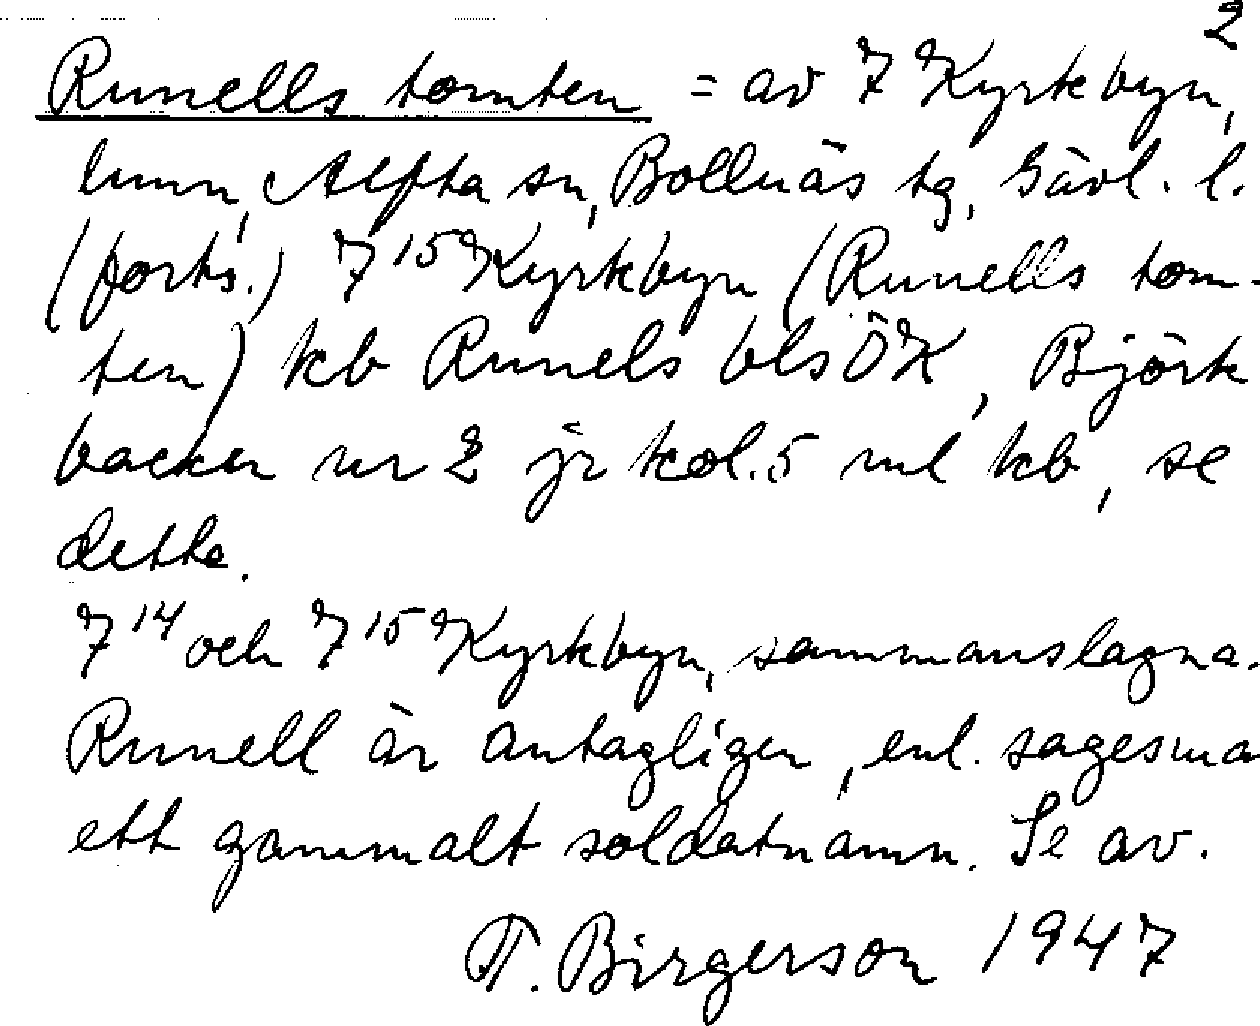 2
Runells tomten = av 7 Kyrkbyn,
hmn, Alfta sn, Bollnäs tg, Gävl. l.
(forts.) 7¹⁵ Kyrkbyn (Runells tom-
ten) kb Runels bls ÖK, Björk
backen nr 2 jr kol. 5 enl kb, se
detta.
7¹⁴ och 7¹⁵ Kyrkbyn, sammanslagna.
Runell är antagligen, enl. sagesma
ett gammalt soldatnamn. Se av.
T. Birgerson 1947